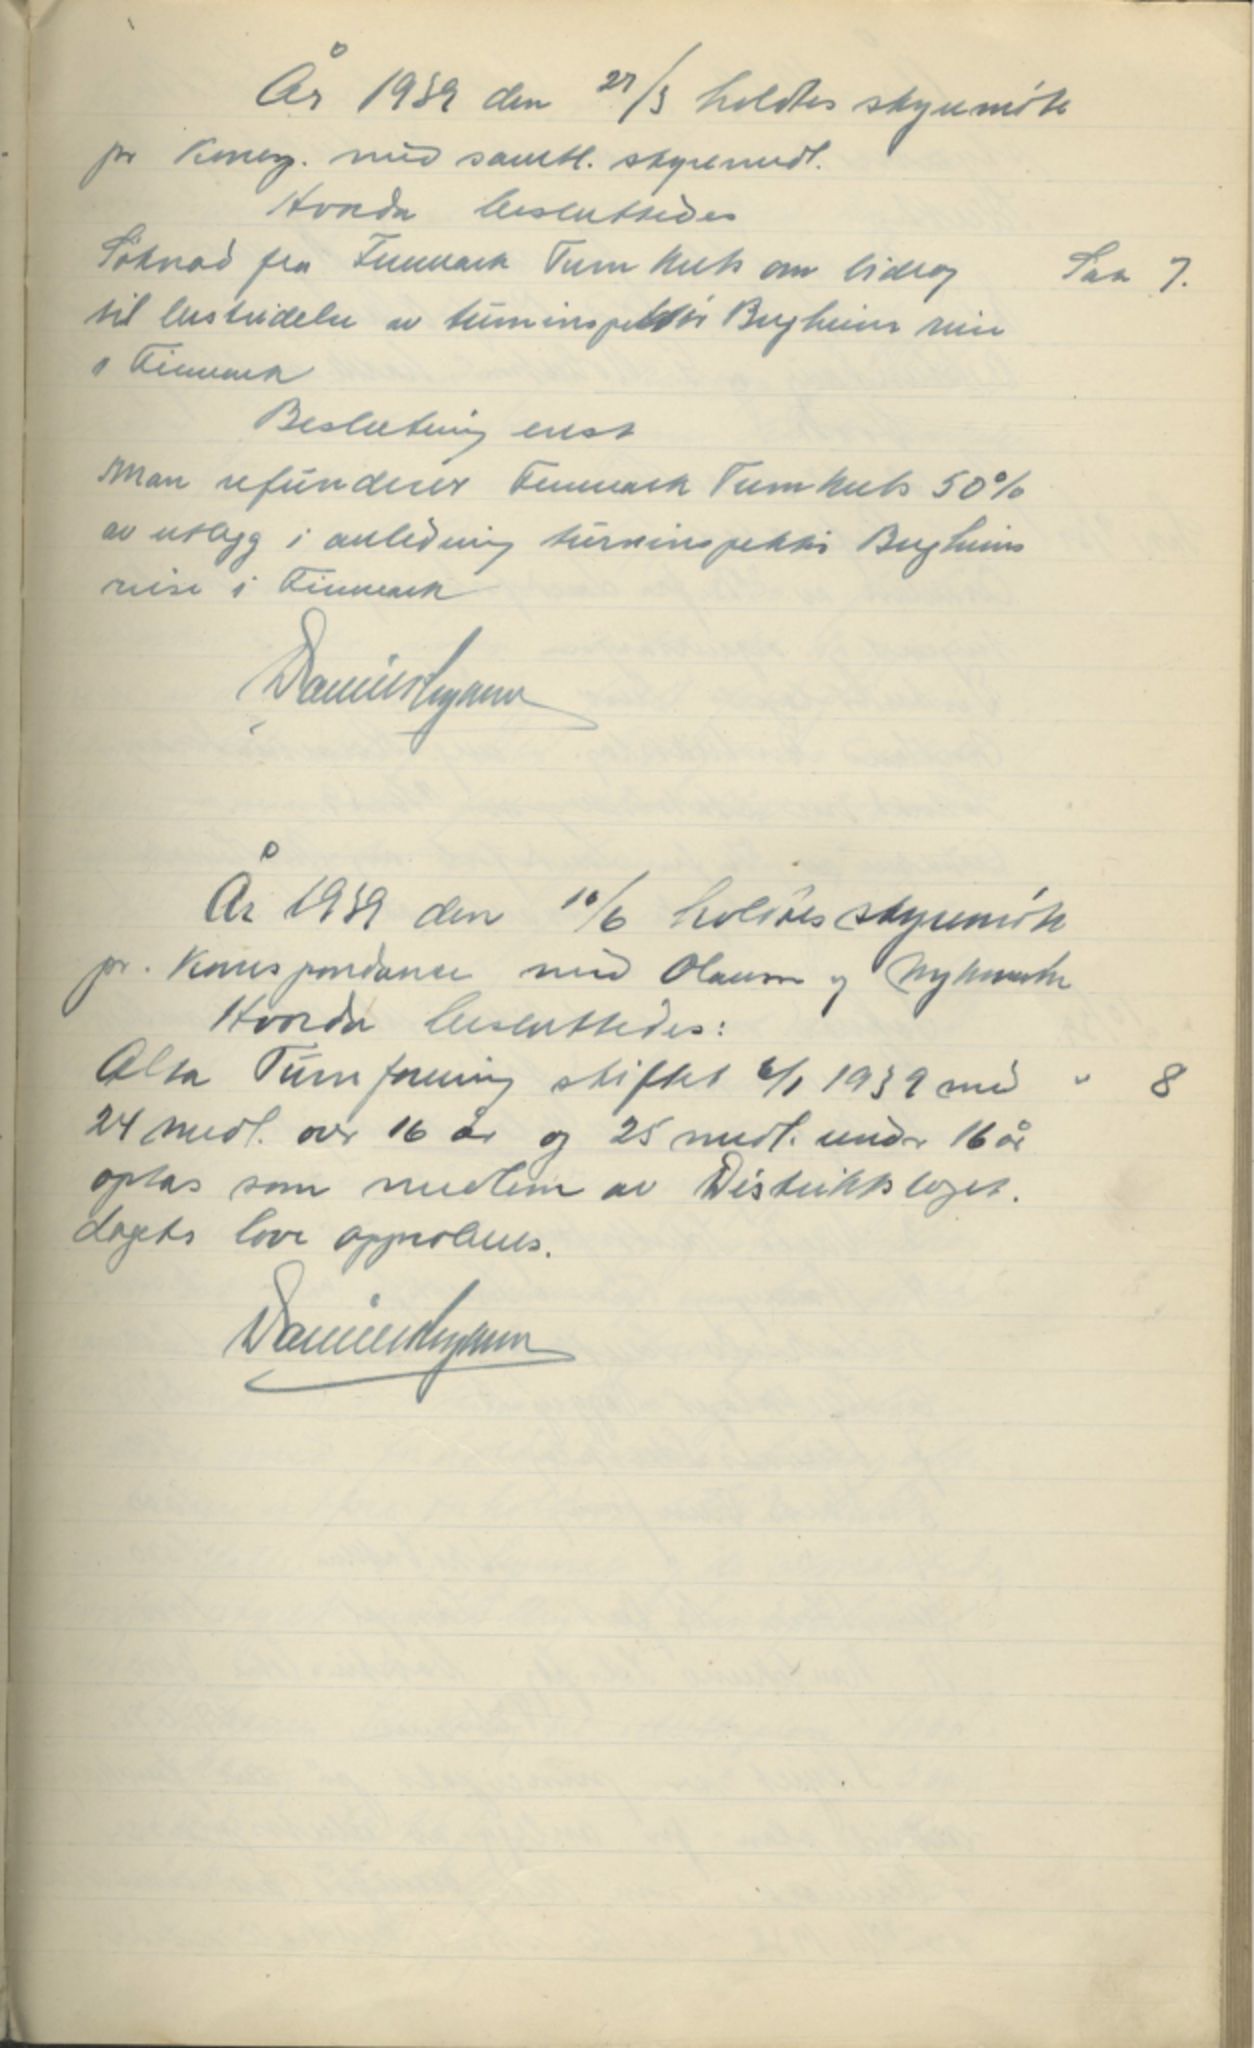 År 1939 den 27/3 holdtes styremöte
pr korresp. med samtl. styremedl.
Hvorda besluttedes
Söknad fra Finnmark Turnkrets om bidrag Sak 7.
til bestridelse av turninspektör Bergheims reise
i Finnmark
Beslutning enst
Man refunderer Finnmark Turnkrets 50%
av utlegg i anledning turninspektör Bergheims
reise i Finnmark
År 1939 den 10/6 holdtes styremöte
pr. korrespondanse med Olausen og Nykmark
Hvorda besluttedes:
Alta Turnforening stiftet 6/1 1939 med " 8
24 medl. over 16 år og 25 medl. under 16 år
optas som medlem av Distriktslaget.
Lagets love approberes.